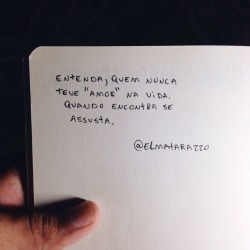 ENTENDA, QUEM NUNCA
TEVE "AMOR" NA VIDA.
QUANDO ENCONTRA SE
ASSUSTA.
@ELMATARAZZO